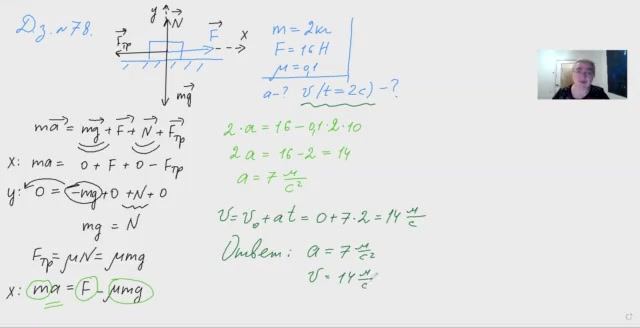 Дз. №78.
y
N
F
x
Fтр
mg
m = 2 кг
F = 16 Н
μ = 0,1
a - ? v(t = 2c) - ?
ma = mg + F + N + Fтр
x: ma = 0 + F + 0 - Fтр
y: 0 = -mg + 0 + N + 0
mg = N
Fтр = μN = μmg
x: ma = F - μmg
2·a = 16 - 0,1·2·10
2a = 16 - 2 = 14
a = 7 м/с²
v = v₀ + at = 0 + 7·2 = 14 м/с
Ответ: a = 7 м/с²
v = 14 м/с